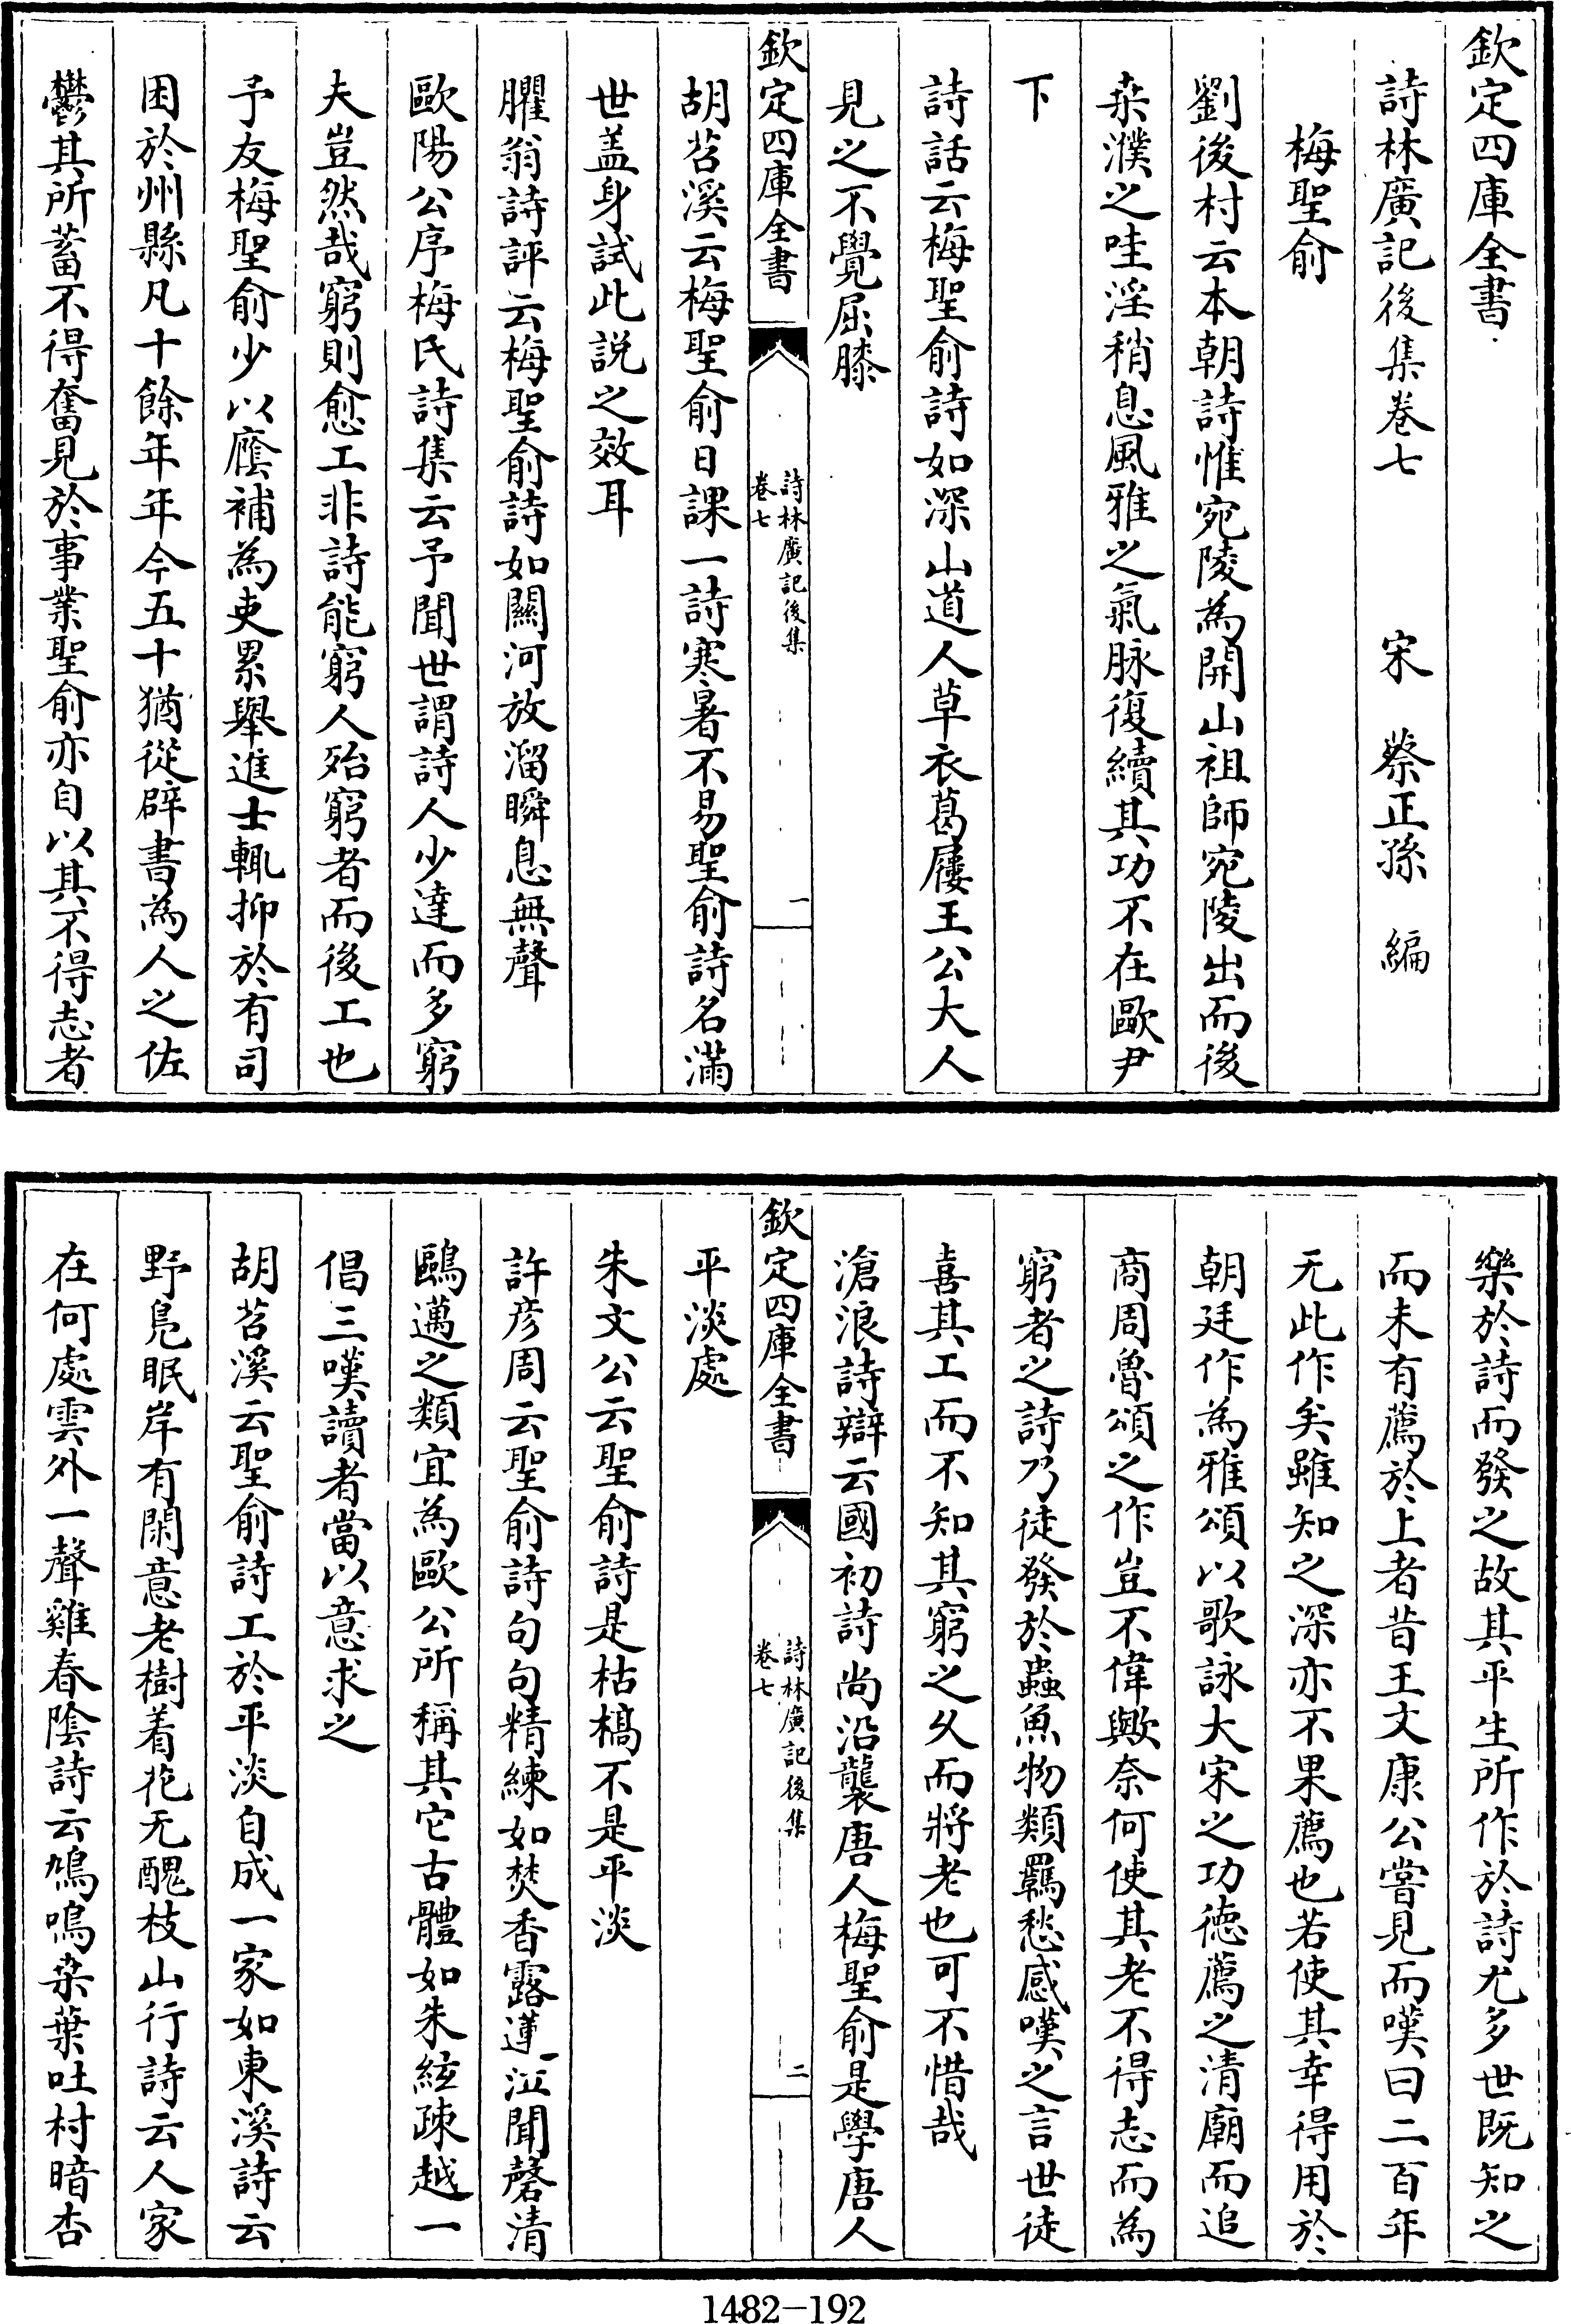 欽定四庫全書
詩林廣記後集卷七　宋　蔡正孫　編
梅聖俞
劉後村云本朝詩惟宛陵為開山祖師宛陵出而後
桒濮之哇淫稍息風雅之氣脉復續其功不在歐尹
下
詩話云梅聖俞詩如深山道人草衣葛屨王公大人
見之不覺屈膝
欽定四庫全書
詩林廣記後集
卷七
一
胡苕溪云梅聖俞日課一詩寒暑不易聖俞詩名滿
世盖身試此説之效耳
臞翁詩評云梅聖俞詩如關河放溜瞬息無聲
歐陽公序梅氏詩集云予聞世謂詩人少達而多窮
夫豈然哉窮則愈工非詩能窮人殆窮者而後工也
予友梅聖俞少以廕補為吏累舉進士輒抑於有司
困於州縣凡十餘年年今五十猶從辟書為人之佐
鬱其所蓄不得奮見於事業聖俞亦自以其不得志者
樂於詩而發之故其平生所作於詩尤多世既知之
而未有薦於上者昔王文康公嘗見而嘆曰二百年
无此作矣雖知之深亦不果薦也若使其幸得用於
朝廷作為雅頌以歌詠大宋之功徳薦之清廟而追
商周魯頌之作豈不偉歟奈何使其老不得志而為
窮者之詩乃徒發於蟲魚物類羈愁感嘆之言世徒
喜其工而不知其窮之乆而將老也可不惜哉
滄浪詩辯云國初詩尚沿襲唐人梅聖俞是學唐人
欽定四庫全書
詩林廣記後集
卷七
二
平淡處
朱文公云聖俞詩是枯槁不是平淡
許彦周云聖俞詩句句精練如焚香露蓮泣聞磬清
鷗邁之類宜為歐公所稱其它古體如朱絃疎越一
倡三嘆讀者當以意求之
胡苕溪云聖俞詩工於平淡自成一家如東溪詩云
野鳬眠岸有閑意老樹着花无醜枝山行詩云人家
在何處雲外一聲雞春陰詩云鳩鳴桒葉吐村暗杏
1482-192